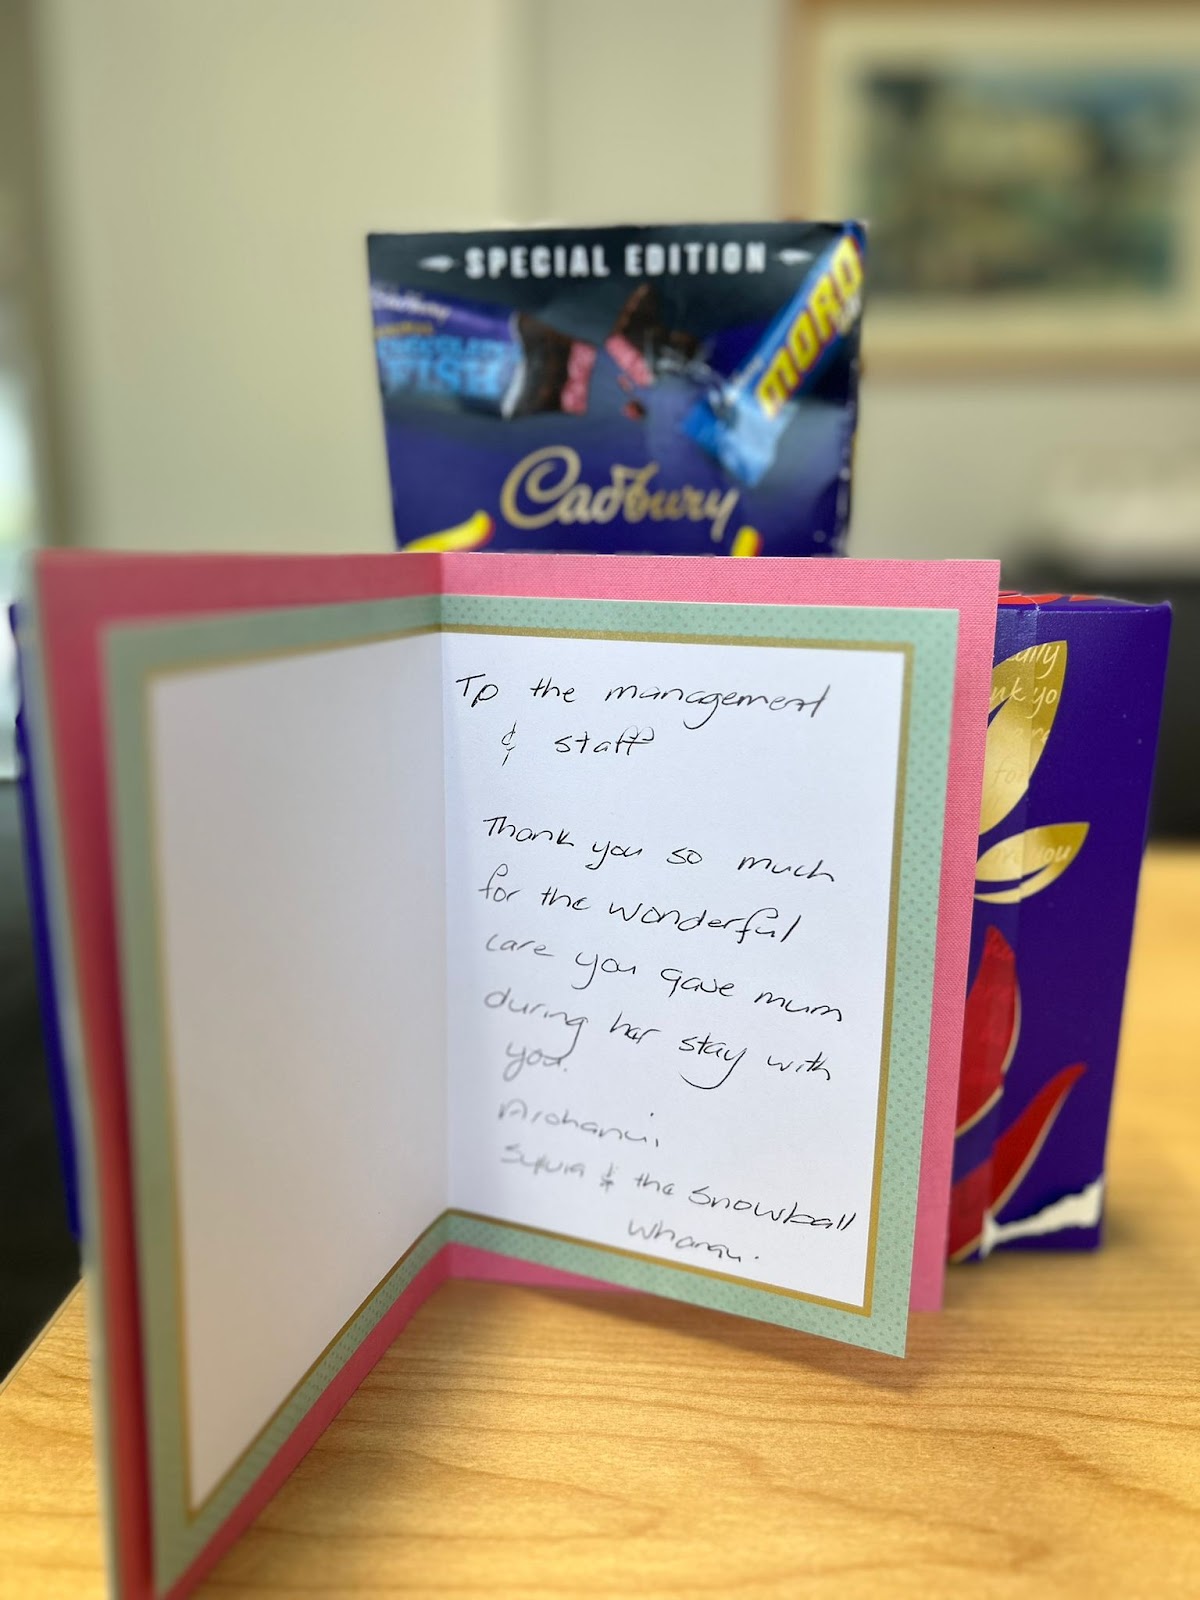 SPECIAL EDITION
Cadbury
CHOCOLATE
FISH
MORO
Cadbury
To the management
& staff
Thank you so much
for the wonderful
care you gave mum
during her stay with
you.
Arohanui,
Sylvia & the Snowball
Whanau.
nk yo
for
you